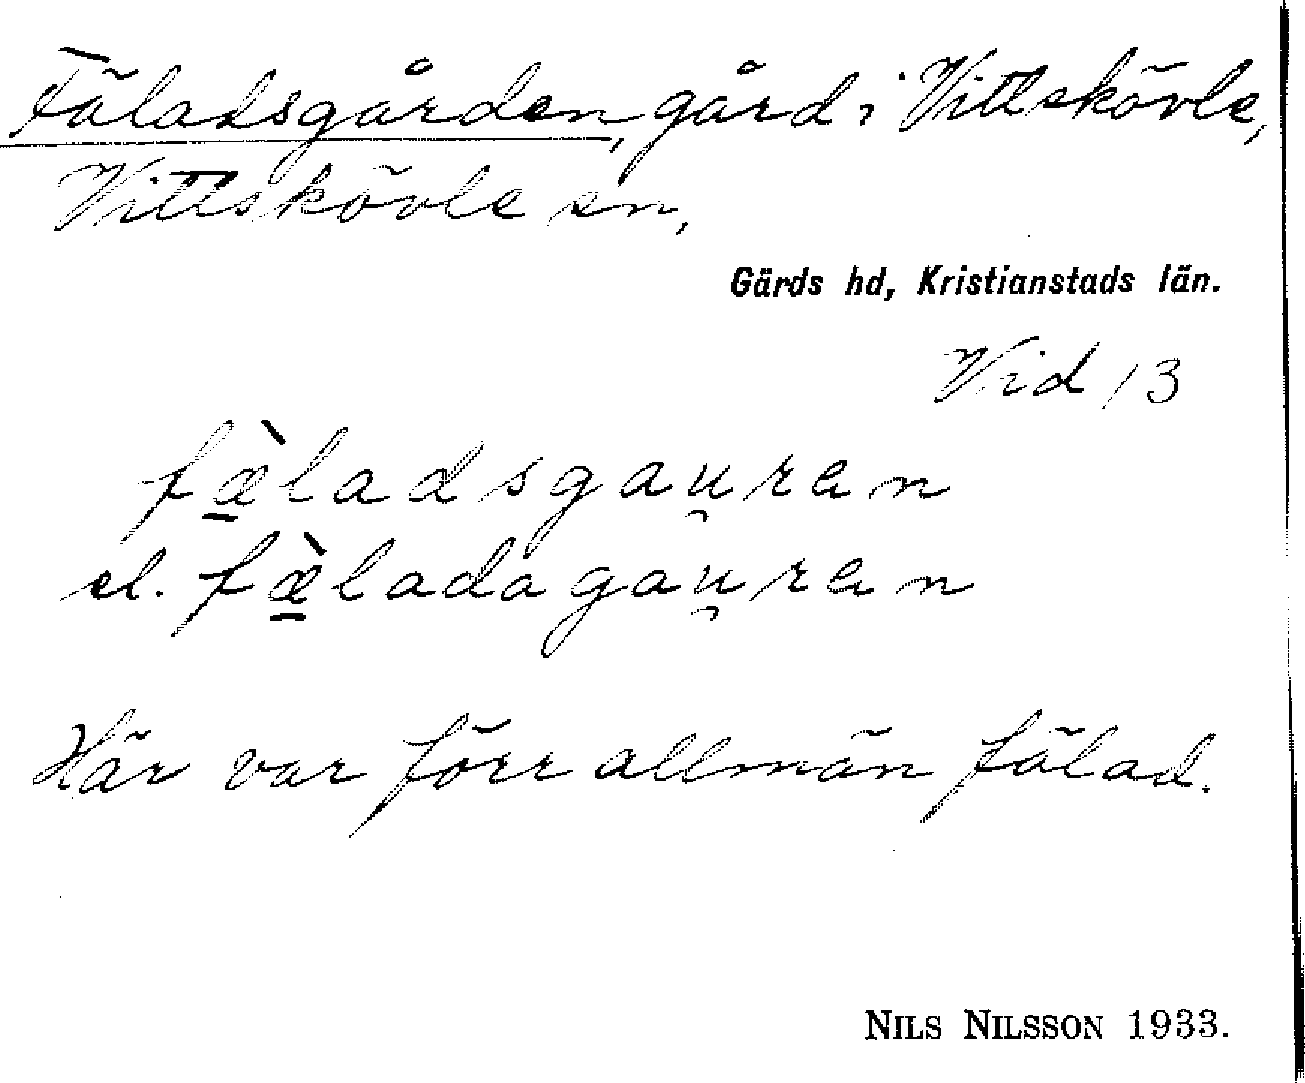 Fäladsgården, gård i Vittskövle,
Vittskövle sn,
Gärds hd, Kristianstads län.
Vid 13
fæ̠̀ladsgau̯ran
el. fæ̠̀ladagau̯ran
Här var förr allmän fälad.
NILS NILSSON 1933.